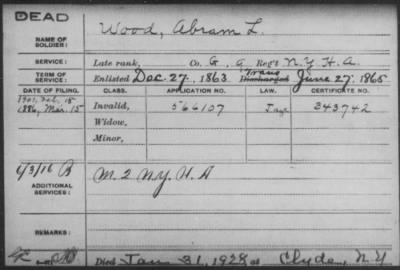 DEAD
NAME OF SOLDIER: Wood, Abram L.
SERVICE: Late rank, Co. G, 9 Reg't N.Y.H.A.
TERM OF SERVICE: Enlisted Dec. 27, 1863 Trans Discharged June 27, 1865
DATE OF FILING. CLASS. APPLICATION NO. LAW. CERTIFICATE NO.
1901, Feb. 15
1886, Mar. 15 Invalid, 566107 343742
Widow,
Minor,
6/3/16 B
ADDITIONAL SERVICES: M. 2 N.Y. H. A
REMARKS:
Died Jan 31, 1928 at Clyde, N.Y